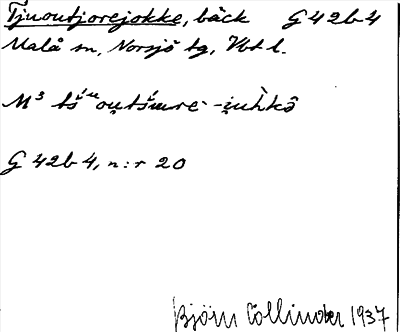 Tjuoutjorejokke, bäck G 42b4
Malå sn, Norsjö tg, Vbt l.
M³
G 42b4, n:r 20
Björn Collinder 1937